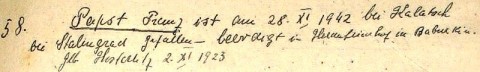 § 8. Papst Franz ist am 28. XI 1942 bei Kalatsch
bei Stalingrad gefallen – beerdigt in Heldenfriedhof in Baburkin.
Geb. 2. XI 1923